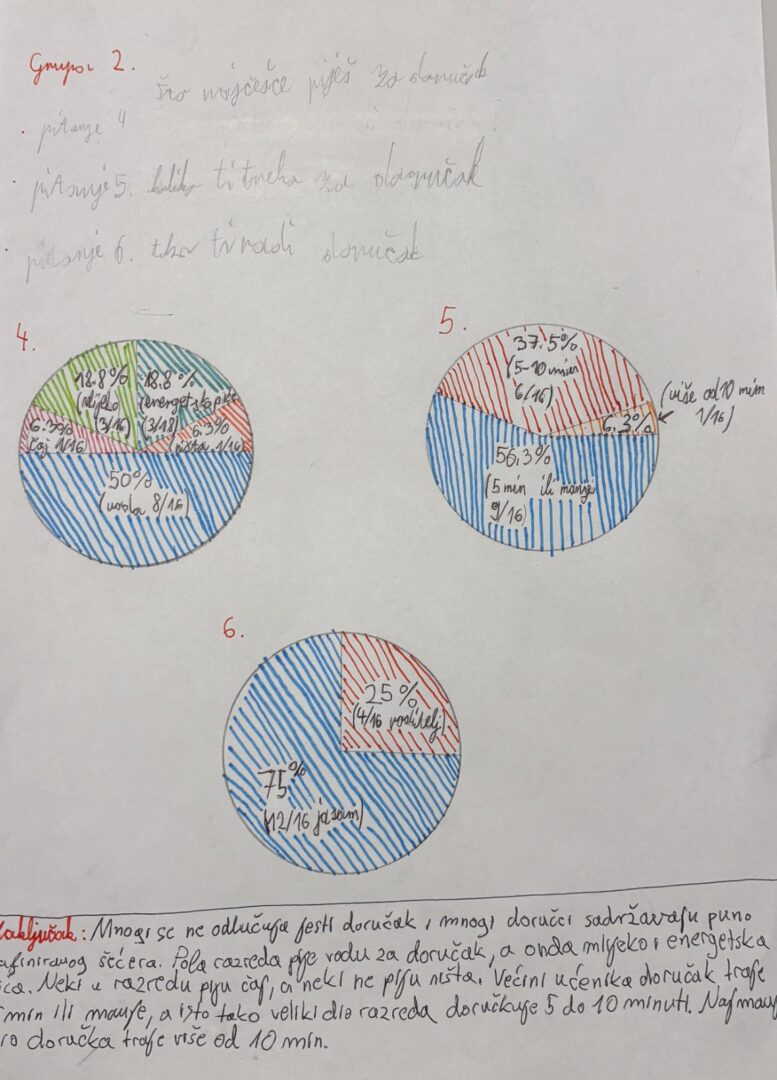 Grupa 2.
što najčešće piješ za doručak
pitanje 4
pitanje 5. koliko ti treba za doručak
pitanje 6. tko ti radi doručak
4.
18.8%
(mlijeko
(3/16)
18.8%
(energetsko piće
(3/18)
6.3%
čaj 1/16)
6.3%
(ništa 1/16)
50%
(voda 8/16)
5.
37.5%
(5-10 min
6/16)
(više od 10 min
1/16)
6.3%
56,3%
(5 min ili manje
9/16)
6.
25%
(4/16 roditelj)
75%
(12/16 ja sam)
Zaključak: Mnogi se ne odlučuju jesti doručak i mnogi doručci sadržavaju puno
afiniranog šećera. Pola razreda pije vodu za doručak, a onda mlijeko i energetska
ića. Neki u razredu piju čaj, a neki ne piju ništa. Većini učenika doručak traje
min ili manje, a isto tako veliki dio razreda doručkuje 5 do 10 minuti. Najmanj
ro doručka traje više od 10 min.